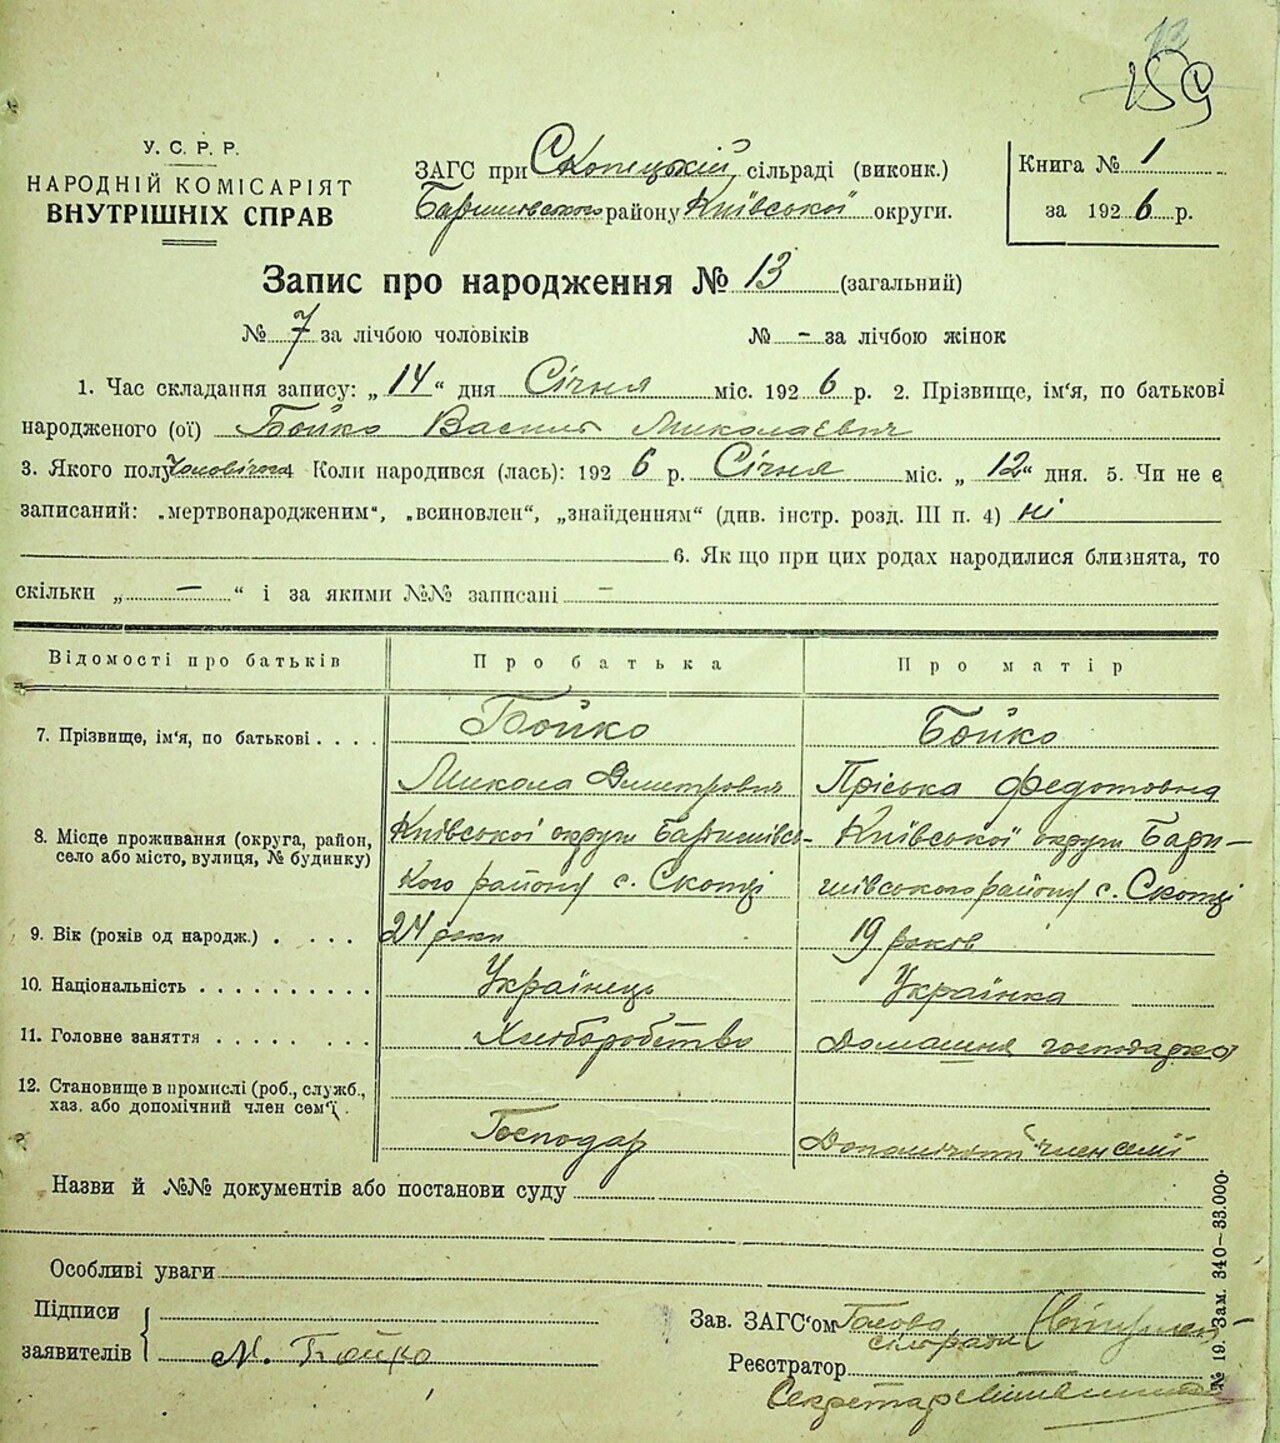 13
159
У. С. Р. Р.
НАРОДНІЙ КОМІСАРІЯТ
ВНУТРІШНІХ СПРАВ
ЗАГС при Скопецькій сільраді (виконк.)
Баришівського району Київської округи.
Книга № 1
за 1926 р.
Запис про народження № 13 (загальний)
№ 7 за лічбою чоловіків № — за лічбою жінок
1. Час складання запису: „14“ дня Січня міс. 1926 р. 2. Прізвище, ім'я, по батькові
народженого (ої) Бойко Василь Миколаєвич
3. Якого полу Чоловічого 4 Коли народився (лась): 1926 р. Січня міс. „12“ дня. 5. Чи не є
записаний: „мертвонародженим“, „всиновлен“, „знайденням“ (див. інстр. розд. III п. 4) ні
6. Як що при цих родах народилися близнята, то
скільки „—“ і за якими №№ записані —
Відомості про батьків Про батька Про матір
7. Прізвище, ім'я, по батькові . . . . Бойко Бойко
Микола Дмитрович Пріська Федотовна
8. Місце проживання (округа, район, село або місто, вулиця, № будинку) Київської округи Баришівсь- Київської округи Бари-
кого району с. Скопці шівського району с. Скопці
9. Вік (років од народж.) . . . . 24 роки 19 років
10. Національність . . . . . . . . . . Українець Українка
11. Головне заняття . . . . . . . . Хліборобство Домашня господарка
12. Становище в промислі (роб., служб.,
хаз. або допомічний член сем'ї . Господар Допомічний член семії
Назви й №№ документів або постанови суду
Особливі уваги
Підписи
заявителів М. Бойко
Зав. ЗАГС'ом Голова
сільради
Реєстратор
Секретар
№ 19. Зам. 340—33.000.